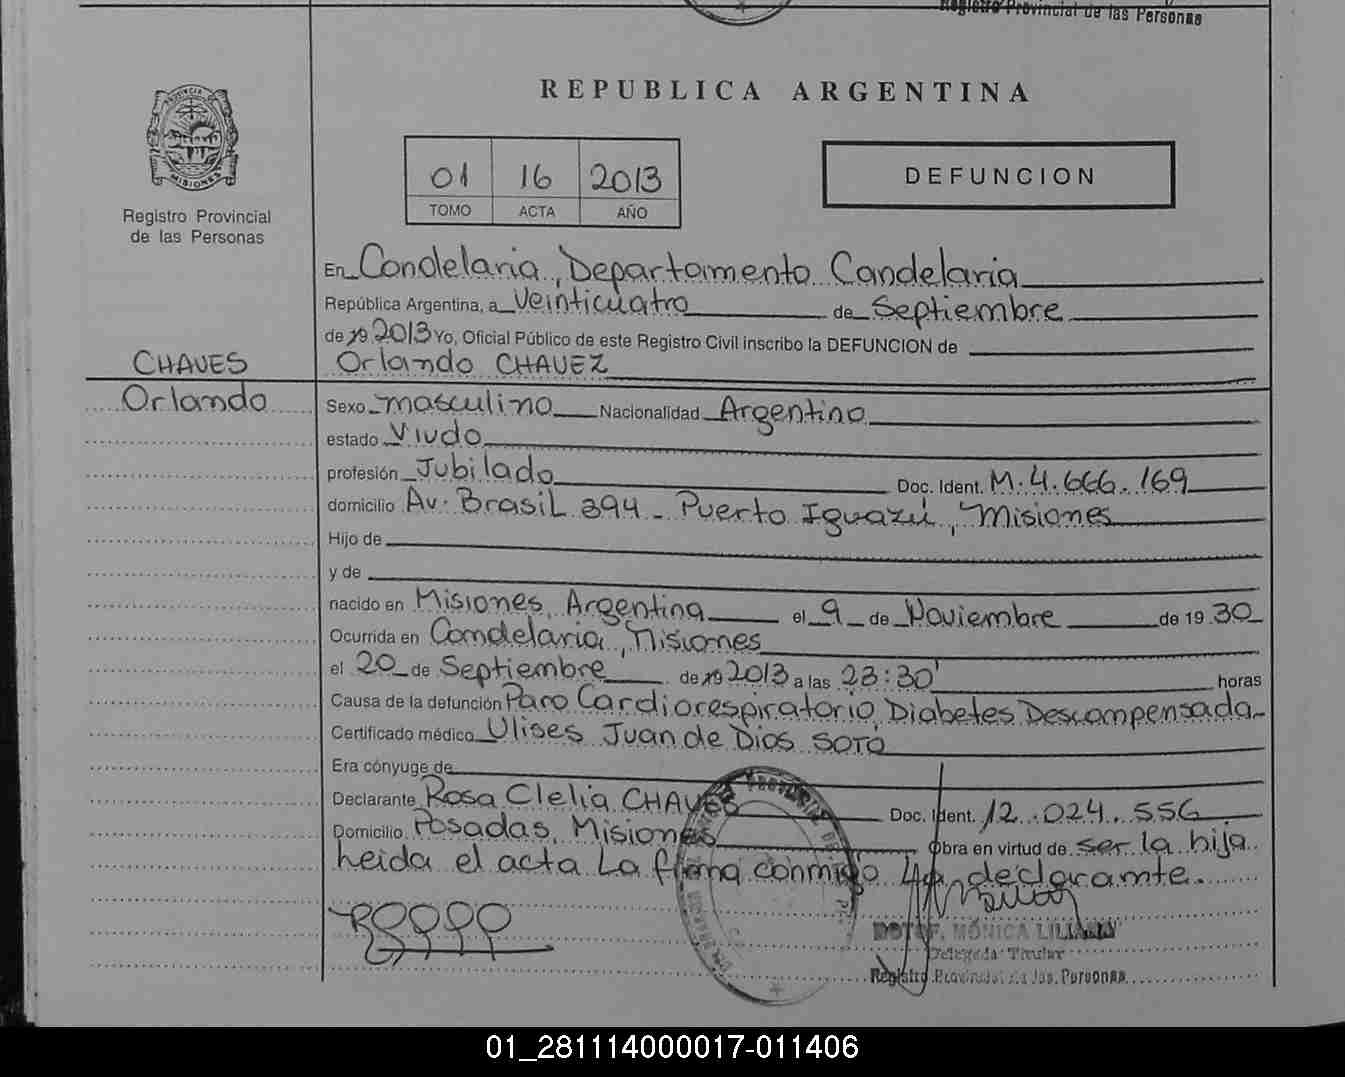 Registro Provincial de las Personas
REPUBLICA ARGENTINA
PROVINCIA DE
MISIONES
Registro Provincial
de las Personas
01 16 2013
TOMO ACTA AÑO
DEFUNCION
En Candelaria, Departamento Candelaria
República Argentina, a Veinticuatro de Septiembre
de 19 2013 Yo, Oficial Público de este Registro Civil inscribo la DEFUNCION de
CHAVES
Orlando CHAVEZ
Orlando
Sexo masculino Nacionalidad Argentino
estado Viudo
profesión Jubilado Doc. Ident. M. 4.666.169
domicilio Av. Brasil 394 - Puerto Iguazú, Misiones
Hijo de
y de
nacido en Misiones, Argentina el 9 de Noviembre de 19 30
Ocurrida en Candelaria, Misiones
el 20 de Septiembre de 19 2013 a las 23:30' horas
Causa de la defunción Paro Cardiorespiratorio, Diabetes Descompensada
Certificado médico Ulises Juan de Dios SOTO
Era cónyuge de
Declarante Rosa Clelia CHAVES Doc. Ident. 12.024.556
Domicilio Posadas, Misiones Obra en virtud de ser la hija
leida el acta La firma conmigo La declarante.
MÓNICA LILIANA
Delegada Titular
Registro Provincial de las Personas
01_281114000017-011406